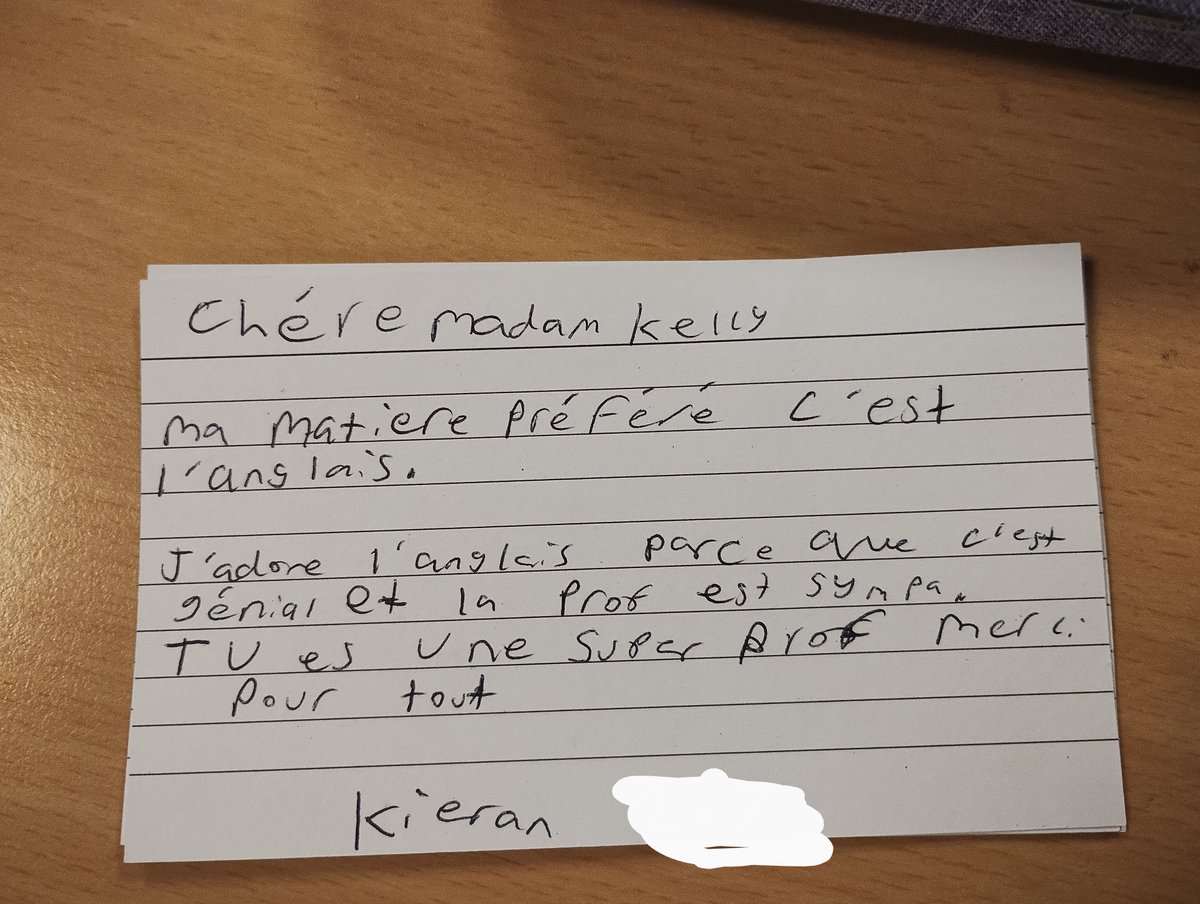 Chére madam Kelly
ma matiere Préféré c'est
l'anglais.
J'adore l'anglais parce que c'est
génial et la prof est sympa.
TU es une super prof merci
pour tout
Kieran